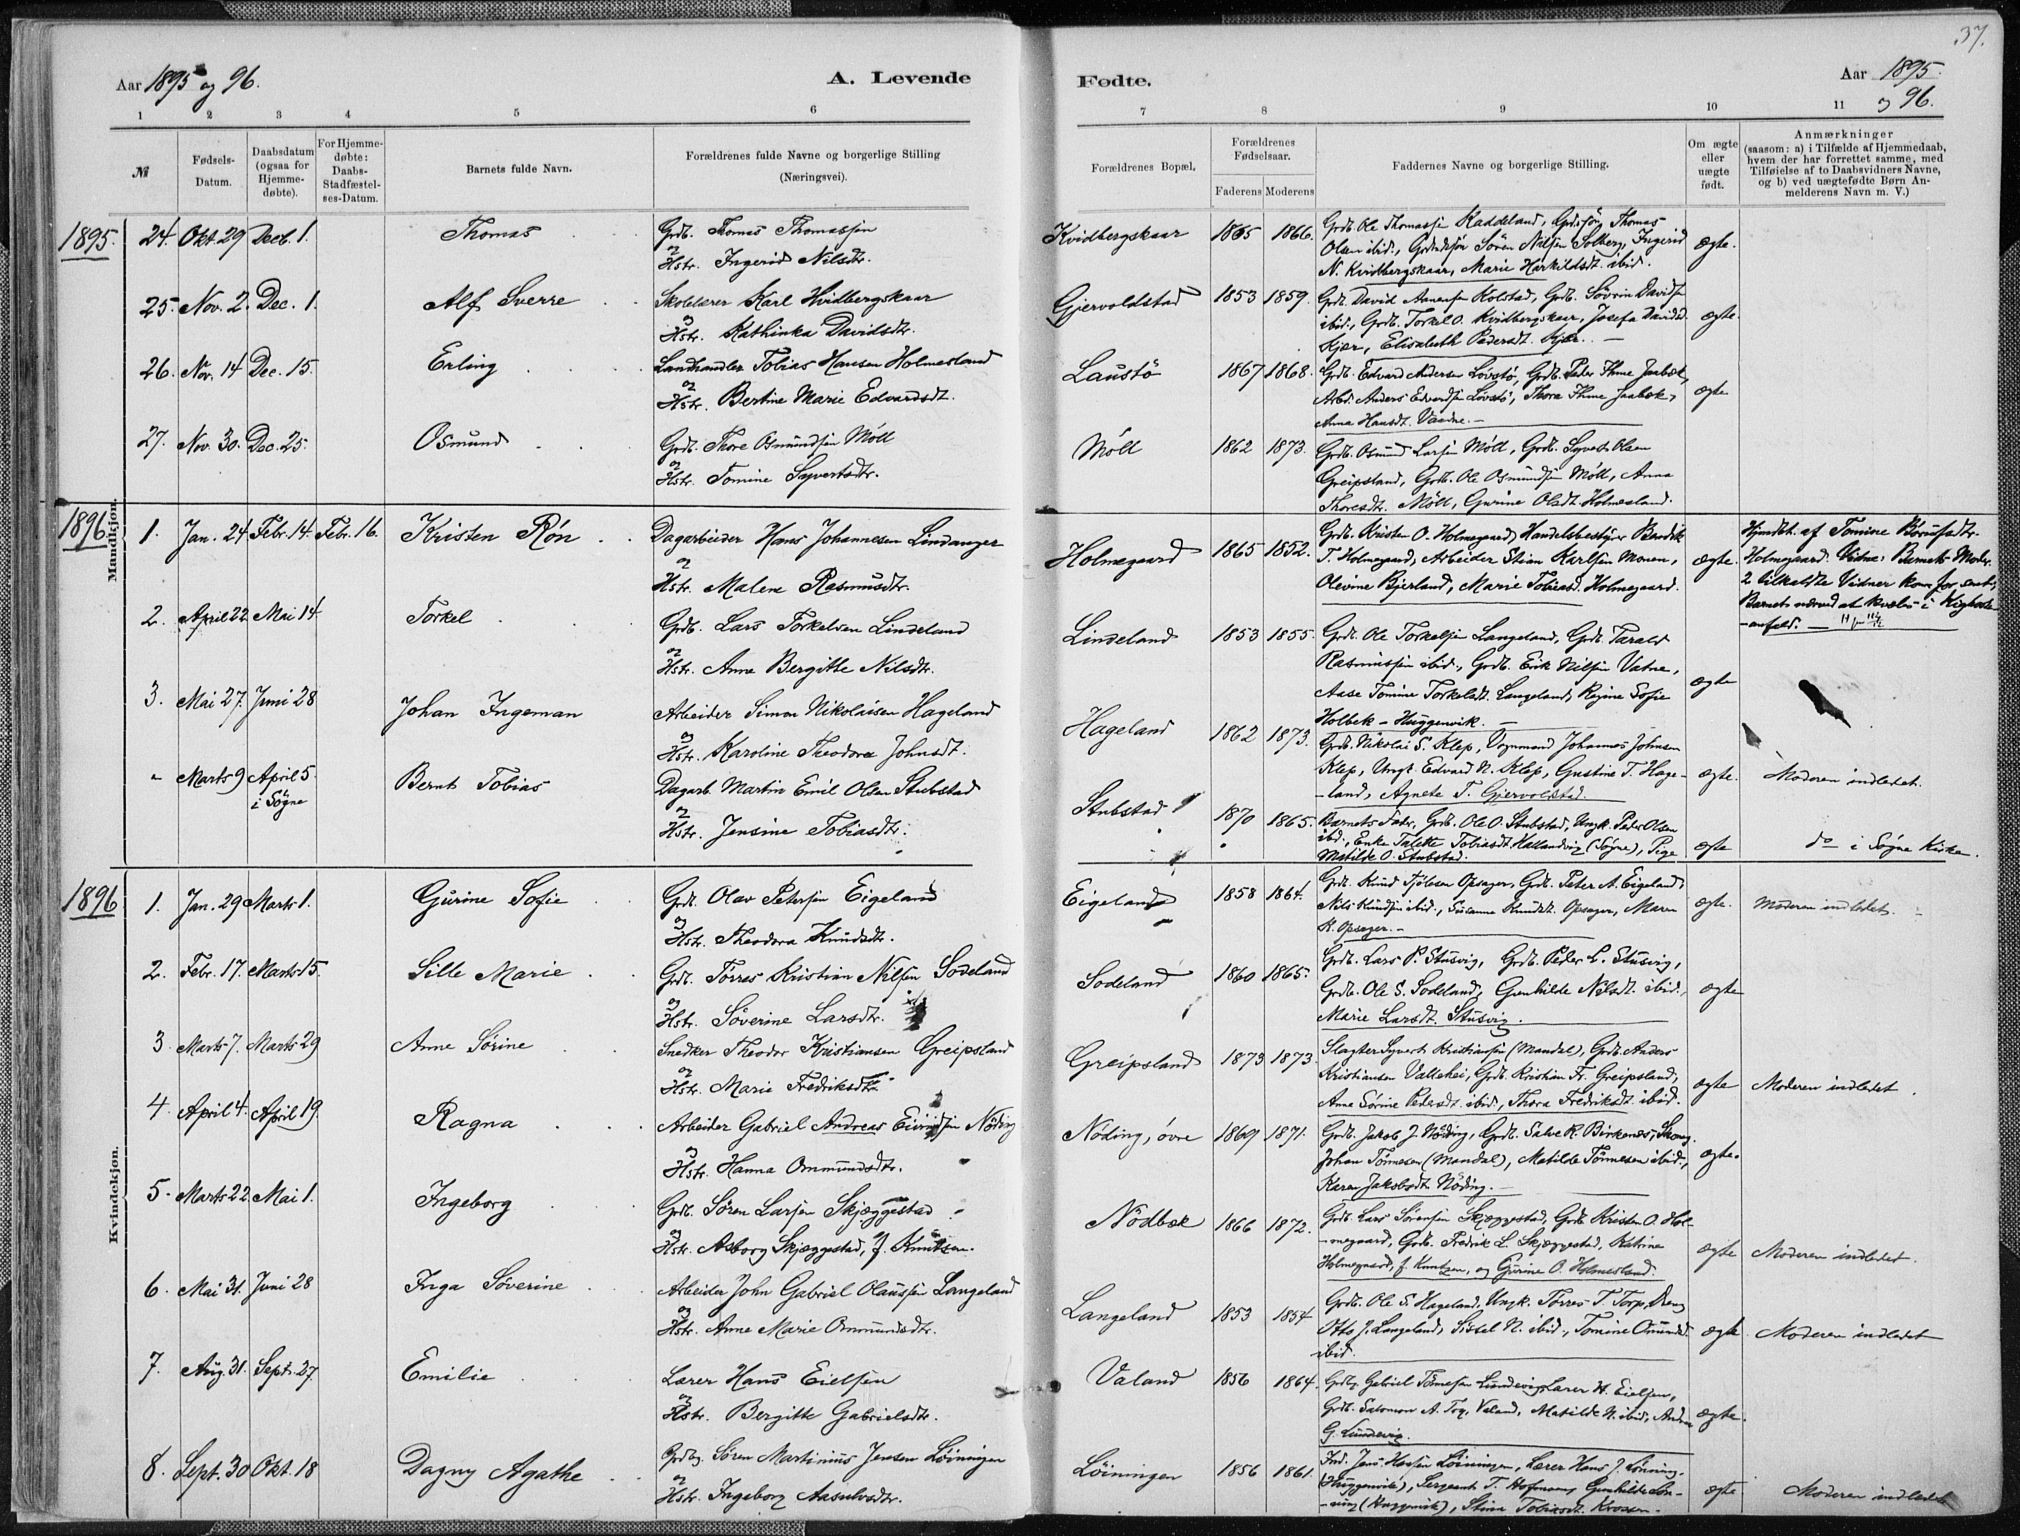 37.
Aar 1895 og 96.
A. Levende
Fødte.
Aar 1895.
og 96.
1 2 3 4 5 6 7 8 9 10 11
№
Fødsels-
Datum.
Daabsdatum
(ogsaa for
Hjemme-
døbte).
For Hjemme-
døbte:
Daabs-
Stadfæstel-
ses-Datum.
Barnets fulde Navn.
Forældrenes fulde Navne og borgerlige Stilling
(Næringsvei).
Forældrenes Bopæl,
Forældrenes
Fødselsaar.
Faderens Moderens
Faddernes Navne og borgerlige Stilling.
Om ægte
eller
uægte
født.
Anmærkninger
(saasom: a) i Tilfælde af Hjemmedaab,
hvem der har forrettet samme, med
Tilføielse af to Daabsvidners Navne,
og b) ved uægtefødte Børn An-
melderens Navn m. V.)
Mandkjøn.
1895. 24. Okt. 29 Decb. 1. Thomas
Grdb. Thomas Thomassen
og
Hstr. Ingerid Nilsdtr.
Kvidbergskaar 1865 1866.
Grdb. Ole Thomassen Raddeland, Grdsøn Thomas
Olsen ibid., Søren Nilsen Solberg, Ingerid
N. Kvidbergskaar, Marie Harkildsdt. ibid.
ægte.
25. Nov. 2. Dec. 1. Alf Sverre
Skolelærer Karl Hvidbergskaar
og
Hstr. Kathinka Davidsdtr.
Gjervoldstad 1853 1859.
Grdb. David Aanensen Kolstad, Grdb. Søvrin Davidsen
ibid., Grdb. Torkel O. Kvidbergskaar, Josefa Davidsd.
Kjær, Elisabeth Pedersdt. Kjær.
ægte.
26. Nov. 14 Dec. 15. Erling
Landhandler Tobias Hansen Holmesland
og
Hstr. Bertine Marie Edvardsdt.
Laustø 1867 1868.
Grdb. Edvard Andersen Løvstø, Grdb. Peder Thme Jaabæk,
Arbd. Anders Edvardsen Løvstø, Thora Thme Jaabæk,
Anna Hansdt. Vaadne.
ægte
27. Nov. 30. Dec. 25. Osmund
Grdb. Thore Osmundsen Möll
og
Hstr. Tomine Syvertsdtr.
Möll 1862 1873.
Grdb. Osmund Larsen Möll, Grdb. Syvert Olsen
Greipsland, Grdb. Ole Osmundsen Möll, Anna
Thoresdt. Möll, Gurine Olsdt. Holmesland.
1896 1. Jan. 24 Febr. 14. Febr. 16. Kristen Røn
Dagarbeider Hans Johannesen Lindanger
og
Hstr. Malene Rasmusdtr.
Holmegaard 1865 1852.
Grdb. Kristen O. Holmegaard, Handelsbestyrer Bendik
T. Holmegaard, Arbeider Stian Karlsen Monen,
Olevine Bjerland, Marie Tobiasd. Holmegaard.
ægte.
Hjmdbt. af Tomine
Holmegaard. Vidne: Barnets Moder.
2 tilkaldte Vidner kom for sent,
Barnet nærved at kvæles i Kighoste-
-anfald.
2. April 22 Mai 14 Torkel
Grdb. Lars Torkelsen Lindeland
og
Hstr. Anne Bergitte Nilsdtr.
Lindeland 1853 1855.
Grdb. Ole Torkelsen Langeland, Grdb. Tarald
Rasmussen ibid., Grdb. Erik Nilsen Vatne,
Aase Tomine Torkelsdt. Langeland, Regine Sofie
Holbek - Huggenvik.
ægte
3. Mai 27. Juni 28 Johan Ingeman
Arbeider Simon Nikolaisen Hageland
og
Hstr. Karoline Theodora Johnsdt.
Hageland 1862 1873.
Grdb. Nikolai S. Klep, Vognmand Johannes Johnsen
Klep, Ungk. Edvard N. Klep, Gustine T. Hage-
-land, Agnete T. Gjervoldstad.
ægte. Moderen indledet.
" Marts 9 April 5.
i Søgne
Bernt Tobias
Dagarb. Martin Emil Olsen Stubstad
og
Hstr. Jensine Tobiasdtr.
Stubstad 1870 1865.
Barnets Fader, Grdb. Ole O. Stubstad, Ungk. Peder Olsen
ibid., Enke Talette Tobiasdt. Hallandvig (Søgne), Pige
Matilde O. Stubstad.
ægte do i Søgne Kirke.
Kvindekjøn.
1896 1. Jan. 29 Marts 1. Gurine Sofie
Grdb. Olav Petersen Eigeland
og
Hstr. Theodora Knudsdtr.
Eigeland 1858 1864.
Grdb. Knud Opsager, Grdb. Peter A. Eigeland,
Nils Knudsen ibid., Susanne Knudsdt. Opsager, Maren
K. Opsager.
ægte. Moderen indledet.
2. Febr. 17. Marts 15. Sille Marie
Grdb. Tørres Kristian Nilsen Sodeland
og
Hstr. Søverine Larsdtr.
Sodeland 1860 1865.
Grdb. Lars P. Stusvig, Grdb. Peder L. Stusvig,
Grdb. Ole S. Sodeland, Gunhilde Nilsdt. ibid.,
Marie Larsdt. Stusvig.
ægte
3. Marts 7. Marts 29 Anne Sørine
Snedker Theodor Kristiansen Greipsland
og
Hstr. Marie Fredriksdtr.
Greipsland 1873 1873.
Slagter Syvert Kristiansen (Mandal), Grdb. Anders
Kristiansen Vallehei, Grdb. Kristian Fr. Greipsland,
Anne Sørine Pedersdt. ibid., Thora Fredriksdt. ibid.
ægte Moderen indledet
4. April 4. April 19. Ragna
Arbeider Gabriel Andreas Eivindsen Nøding
og
Hstr. Hanna Ommundsdtr.
Nøding, øvre 1869 1871.
Grdb. Jakob J. Nøding, Grdb. Salve R. Birkenes, Skomg.
Johan Tønnesen (Mandal), Matilde Tønnesen ibid.,
Karen Jakobsdt. Nøding.
ægte.
5. Marts 22 Mai 1. Ingeborg
Grdb. Søren Larsen Skjæggestad
og
Hstr. Asborg Skjæggestad, f. Knutsen.
Nodbæk 1866 1872.
Grdb. Lars Sørensen Skjæggestad, Grdb. Kristen O. Hol-
-megaard, Grdb. Fredrik L. Skjæggestad, Katrine
Holmegaard, f. Knutzen, og Gurine O. Holmesland.
ægte Moderen indledet.
6. Mai 31. Juni 28 Inga Søverine
Arbeider John Gabriel Olaussen Langeland
og
Hstr. Anne Marie Ommundsdtr.
Langeland 1853 1854
Grdb. Ole S. Hageland, Ungk. Tørres T. Torp, Dreng
Otto J. Langeland, Sissel N. ibid., Tomine Omundsd.
ibid.
ægte. Moderen indledet
7. Aug. 31. Sept. 27. Emilie
Lærer Hans Eielsen
og
Hstr. Bergitte Gabrielsdtr.
Valand 1856 1864.
Grdbg. Gabriel Tønnesen Lundevig, Lærer H. Eielsen,
Grdb. Salomon A. Valand, Matilde N. ibid., Andrea
G. Lundevig.
ægte.
8. Sept. 30 Okt. 18 Dagny Agathe
Grdbg. Søren Martinius Jensen Løiningen
og
Hstr. Ingeborg Aasulvsdtr.
Løiningen 1856 1861.
Ind. Jens Hansen Løiningen, Lærer Hans J. Lønning
(Huggenvik), Sergeant T. Hofmann, Gunhilde Løn-
-ning (Huggenvik), Stina Tobiasdt. Krossen.
ægte Moderen indledet